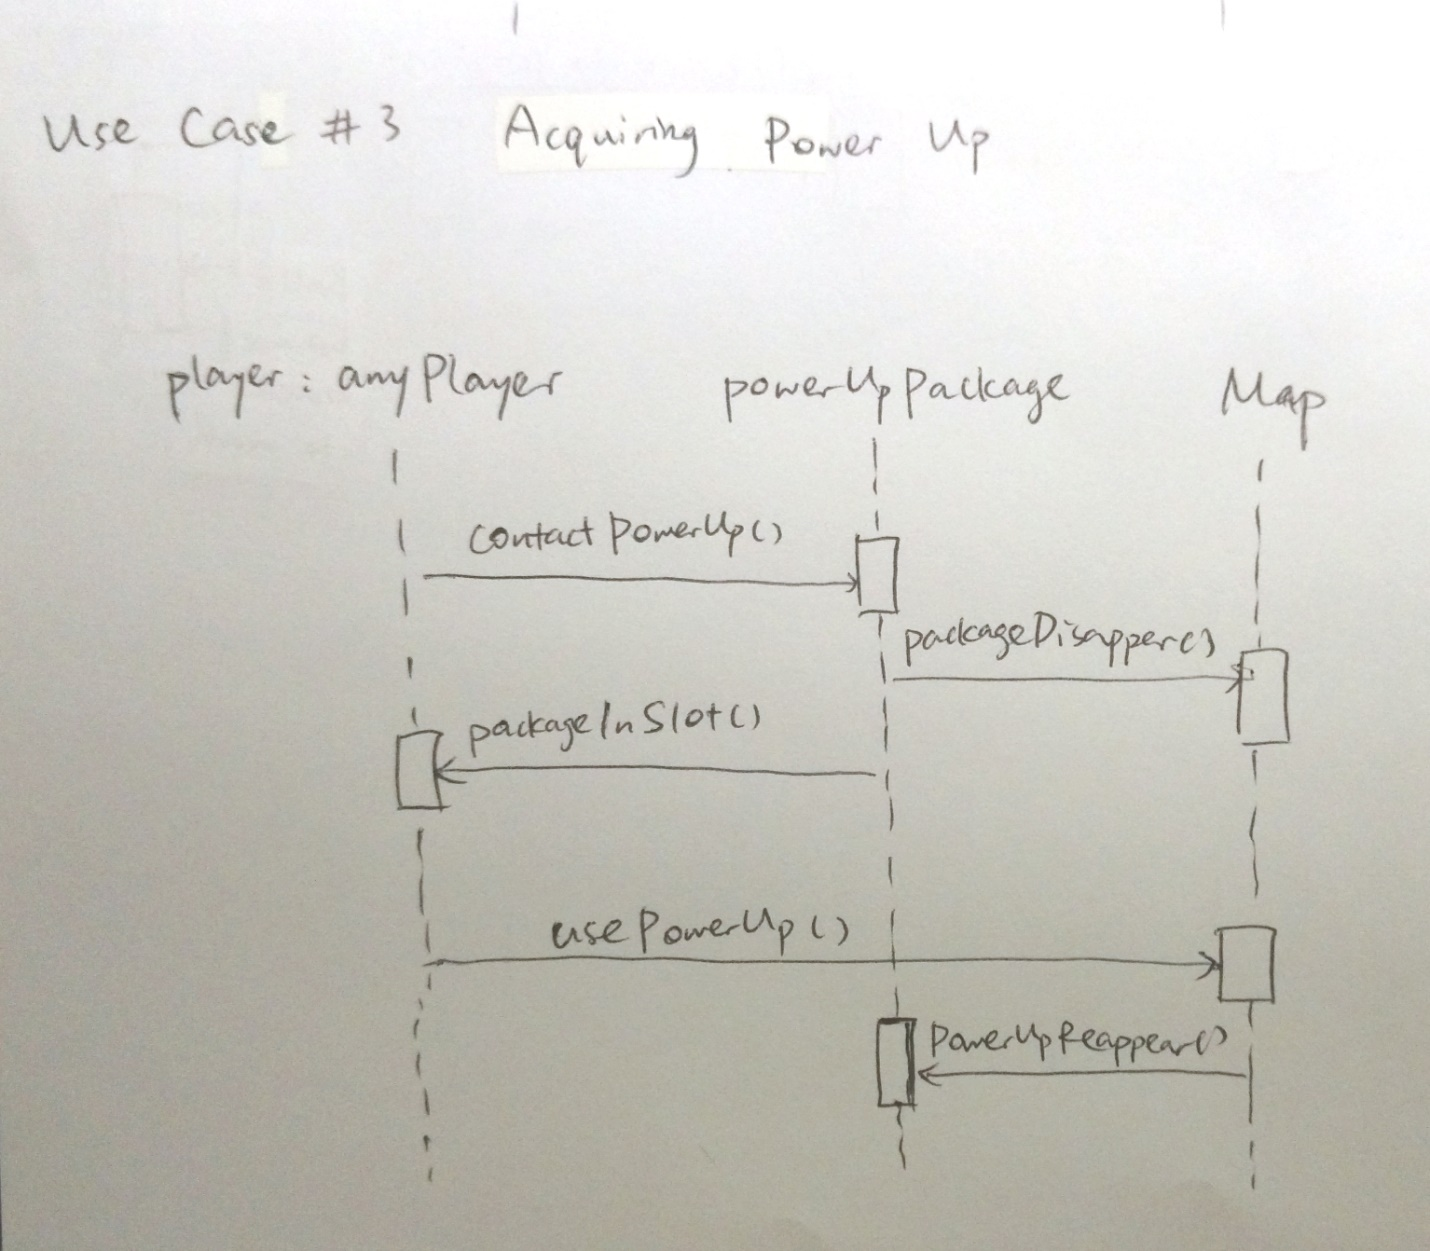 Use Case #3 Acquiring Power Up
player: anyPlayer powerUpPackage Map
contactPowerUp()
packageDisapper()
packageInSlot()
usePowerUp()
PowerUpReappear()